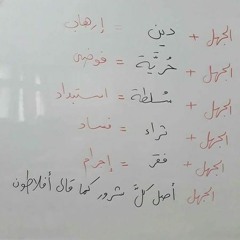 الجهل + دين = إرهاب
الجهل + حُرّيَّة = فوضى
الجهل + سُلطة = استبداد
الجهل + ثراء = فساد
الجهل + فقر = إجرام
الجهل أصل كلّ شرور كما قال أفلاطون